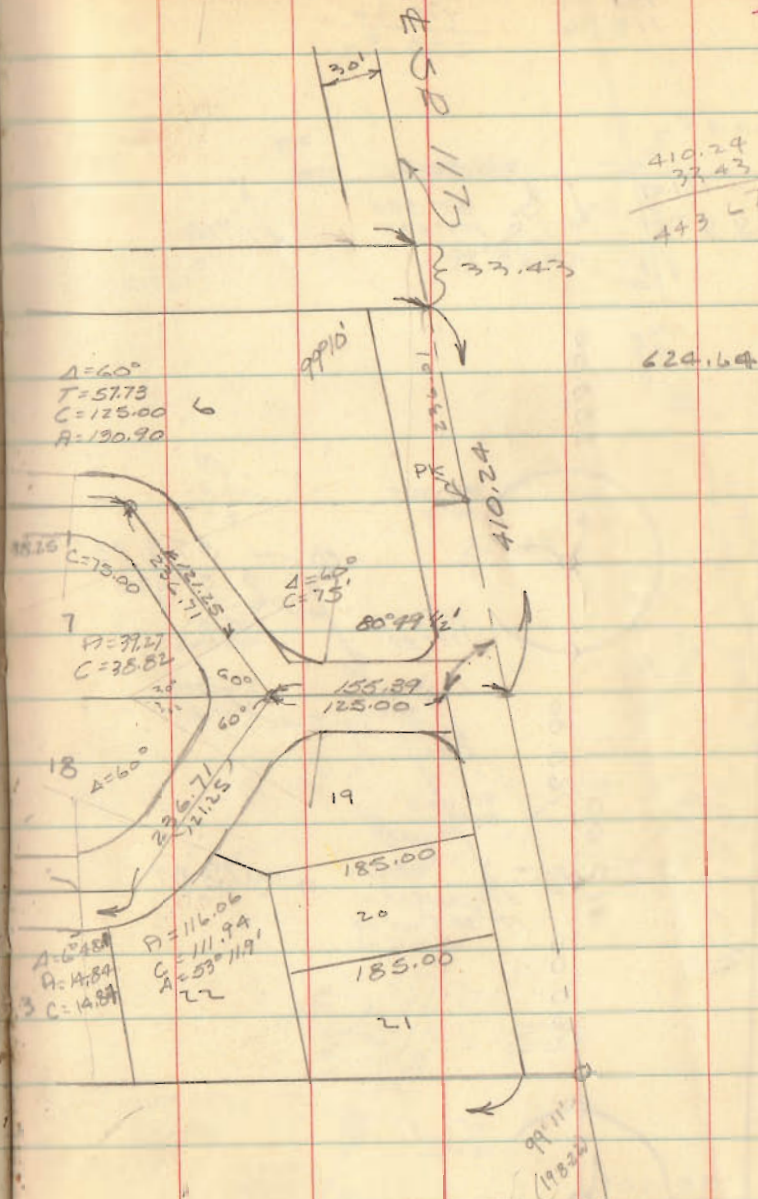 30'
℄ SR 1173
410.24
33.43
443 6
33.43
99°10'
624.64
Δ=60°
T=57.73
C=125.00
A=130.90
6
PK
410.24
C=75.00
121.25
236.71
Δ=60°
C=75'
80°49 1/2'
7
A=39.27
C=38.82
60°
60°
155.39
125.00
18
Δ=60°
236.71
121.25
19
185.00
20
185.00
A=116.06
C=111.94
Δ=53°11.9'
22
A=14.84
C=14.84
3
21
99°11'
(198-22)